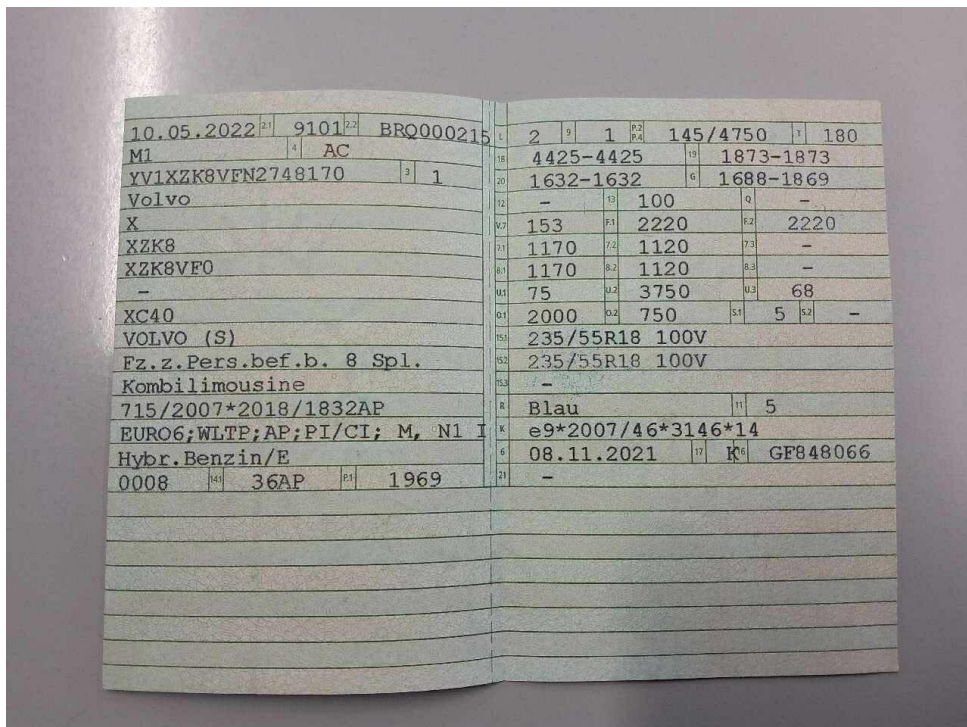 10.05.2022 2.1 9101 2.2 BRQ000215
M1 4 AC
YV1XZK8VFN2748170 3 1
Volvo
X
XZK8
XZK8VF0
–
XC40
VOLVO (S)
Fz.z.Pers.bef.b. 8 Spl.
Kombilimousine
715/2007*2018/1832AP
EURO6;WLTP;AP;PI/CI; M, N1 I
Hybr.Benzin/E
0008 14.1 36AP P.1 1969
L 2 9 1 P.2 P.4 145/4750 T 180
18 4425-4425 19 1873-1873
20 1632-1632 G 1688-1869
12 – 13 100 Q –
V.7 153 F.1 2220 F.2 2220
7.1 1170 7.2 1120 7.3 –
8.1 1170 8.2 1120 8.3 –
U.1 75 U.2 3750 U.3 68
O.1 2000 O.2 750 S.1 5 S.2 –
15.1 235/55R18 100V
15.2 235/55R18 100V
15.3 –
R Blau 11 5
K e9*2007/46*3146*14
6 08.11.2021 17 K 16 GF848066
21 –